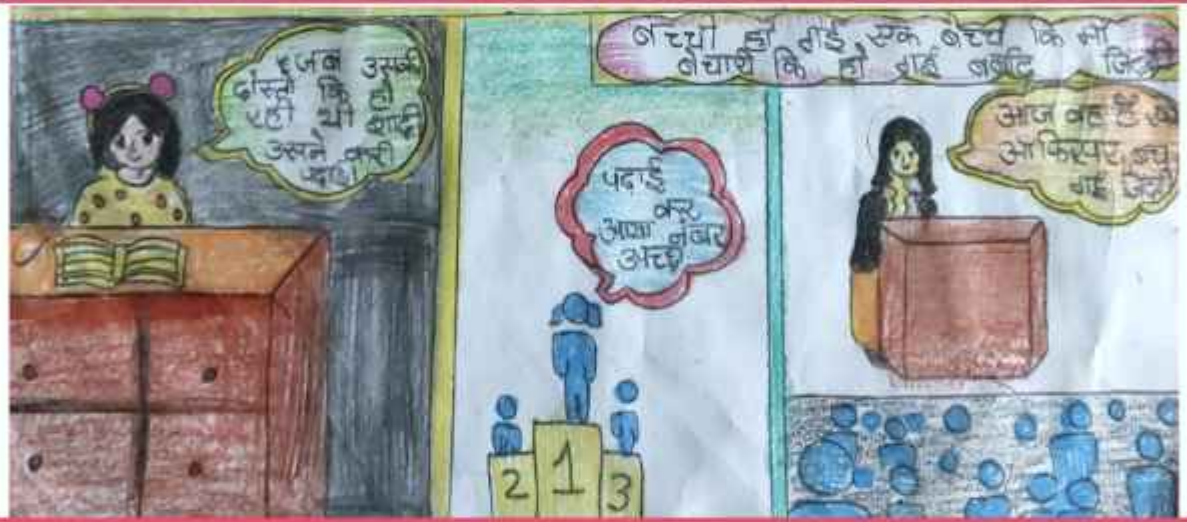 दोस्तों, जब उसकी
रही कि थी
उसने करी
पढ़ाई
पढाई
कर
आया नंबर
अच्छा
2 1 3
बच्ची हो गई एक बच्चे कि माँ
बेचारी कि हो गई बर्बाद जिंदगी
आज वह है एक
आफिसर, बच
गई जिंदगी